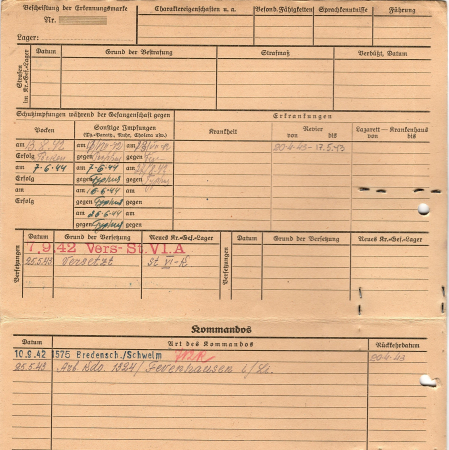 Bescheiftung der Erkennungsmarke
Nr.
Lager:
Charaktereigenschaften u. a.
Besond. Fähigkeiten
Sprachkenntnisse
Führung
Strafen im Kr.-Gef.-Lager
Datum
Grund der Bestrafung
Strafmaß
Verbüßt, Datum
Schutzimpfungen während der Gefangenschaft gegen
Erkrankungen
Pocken
Sonstige Impfungen
(Ty.-Paraty., Ruhr, Cholera usw.)
Krankheit
Revier
von bis
Lazarett — Krankenhaus
von bis
am am am
20.4.43 - 17.5.43
Erfolg gegen gegen
am 7.6.44 am 7.6.44 am
Erfolg gegen Typhus gegen
am am 16.6.44 am
Erfolg gegen Typhus gegen
am 26.6.44 am
gegen Typhus gegen
Versetzungen
Datum
Grund der Versetzung
Neues Kr.-Gef.-Lager
Versetzungen
Datum
Grund der Versetzung
Neues Kr.-Gef.-Lager
7.9.42 Vers- St. VI. A
25.5.43 Versetzt St VI-K
Kommandos
Datum
Art des Kommandos
Rückkehrdatum
10.9.42 1575 Bredensch./Schwelm 20.4.43
25.5.43 Arb Kdo. 1324/